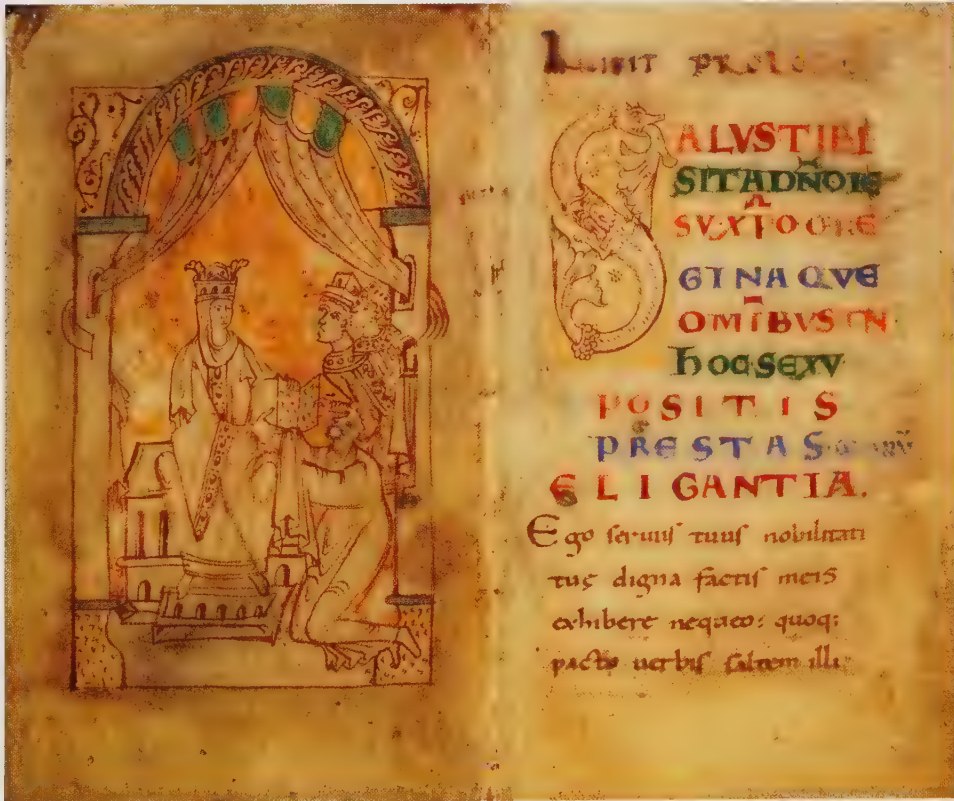 Incipit PROLO
SALVS TIBI
SIT A DÑO IE
SV XP̄O O RE
GINA QVE
OM̄IBVS IN
hOC SEXV
POSITIS
PRESTAS
ELIGANTIA.
Ego seruus tuus nobilitati
tuę digna factis meis
exhibere nequeo: quoq;
pacto uerbis saltem illi